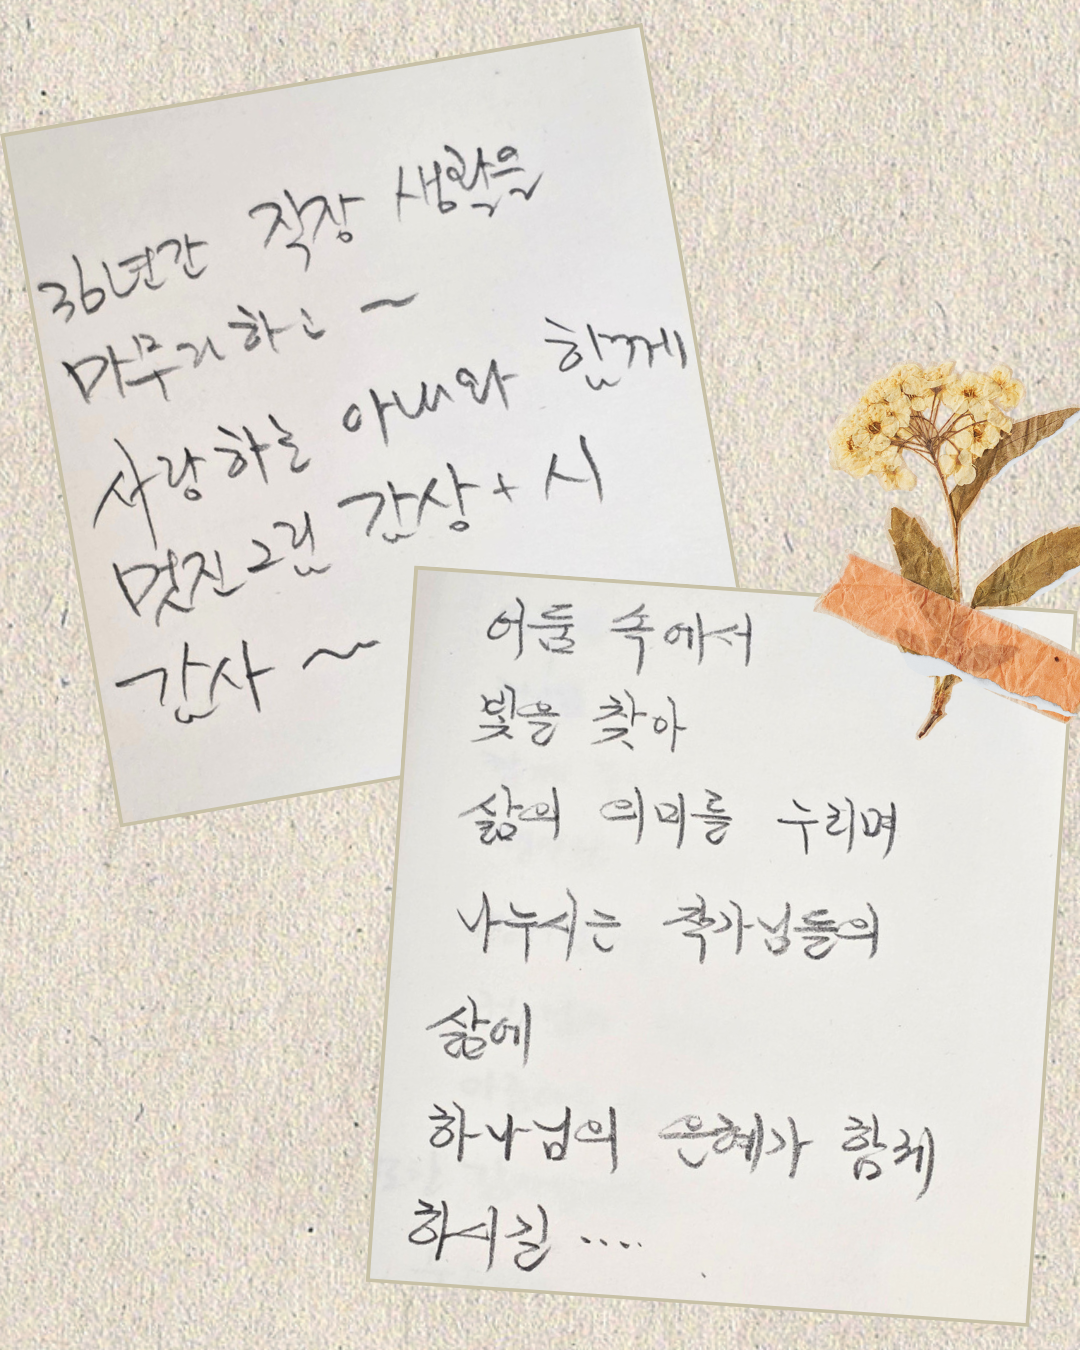 36년간 직장 생활을
마무리하고 ~
사랑하는 아내와 함께
멋진 그림 감상 + 시
감사 ~
어둠 속에서
빛을 찾아
삶의 의미를 누리며
나누시는 작가님들의
삶에
하나님의 은혜가 함께
하시길 ....